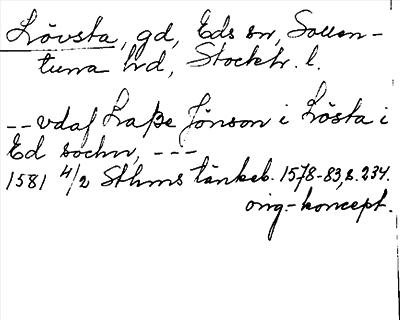 Lövsta, gd, Eds sn, Sollen-
tuna hd, Stockh. l.
-- vdaf Laße Jönson i Lösta i
Ed sochn, ---
1581 4/2 Sthms tänkeb. 1578-83, s. 234.
orig.-koncept.